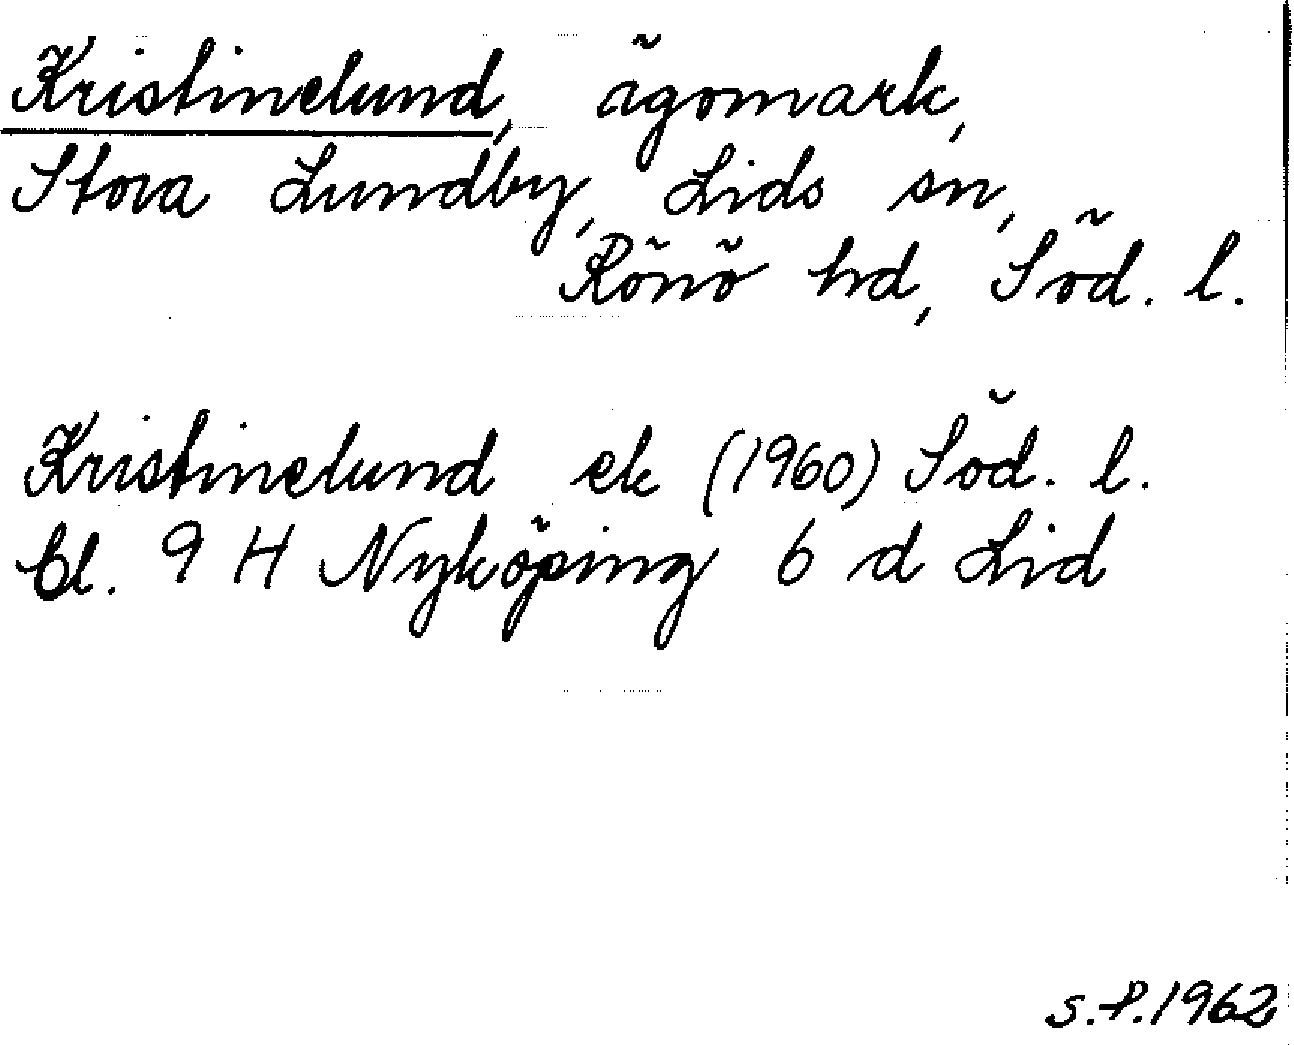 Kristinelund, ägomark,
Stora Lundby, Lids sn,
Rönö hd, Söd. l.
Kristinelund ek (1960) Söd. l.
bl. 9 H Nyköping 6 d Lid
S.P.1962